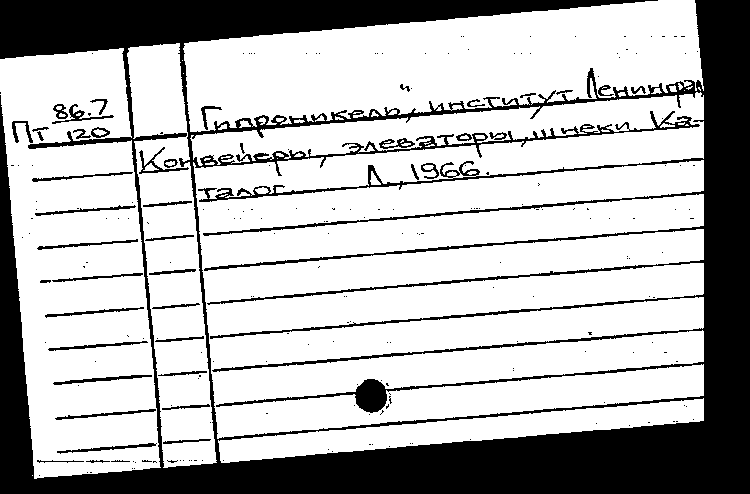 86.7
Пт 120
Гипроникель", институт. Ленинград
Конвейеры, элеваторы, шнеки. Ка-
талог. Л., 1966.